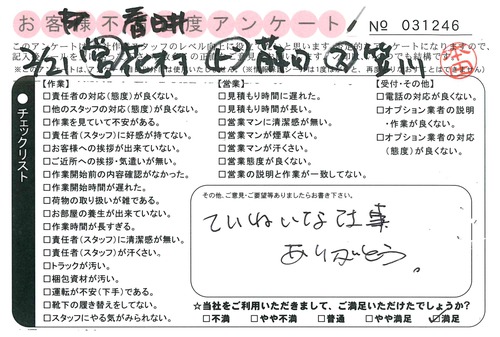 お客様不満度アンケート
No 031246
チェックリスト
【作業】
□責任者の対応(態度)が良くない。
□他のスタッフの対応(態度)が良くない。
□作業を見ていて不安がある。
□責任者(スタッフ)に好感が持てない。
□お客様への挨拶が出来ていない。
□ご近所への挨拶・気遣いが無い。
□作業開始前の内容確認がなかった。
□作業開始時間が遅れた。
□荷物の取り扱いが雑である。
□お部屋の養生が出来ていない。
□作業時間が長すぎる。
□責任者(スタッフ)に清潔感が無い。
□責任者(スタッフ)が汗くさい。
□トラックが汚い。
□梱包資材が汚い。
□運転が不安(下手)である。
□靴下の履き替えをしてない。
□スタッフにやる気がみられない。
【営業】
□見積もり時間に遅れた。
□見積もり時間が長い。
□営業マンに清潔感が無い。
□営業マンが煙草くさい。
□営業マンが汗くさい。
□営業態度が良くない。
□営業の説明と作業が一致してない。
【受付・その他】
□電話の対応が良くない。
□オプション業者の説明
・作業が良くない。
□オプション業者の対応
(態度)が良くない。
その他、ご意見・ご要望等ありましたらお書き下さい。
ていねいな仕事
ありがとう
★当社をご利用いただきまして、ご満足いただけたでしょうか?
□不満 □やや不満 □普通 □やや満足 □満足